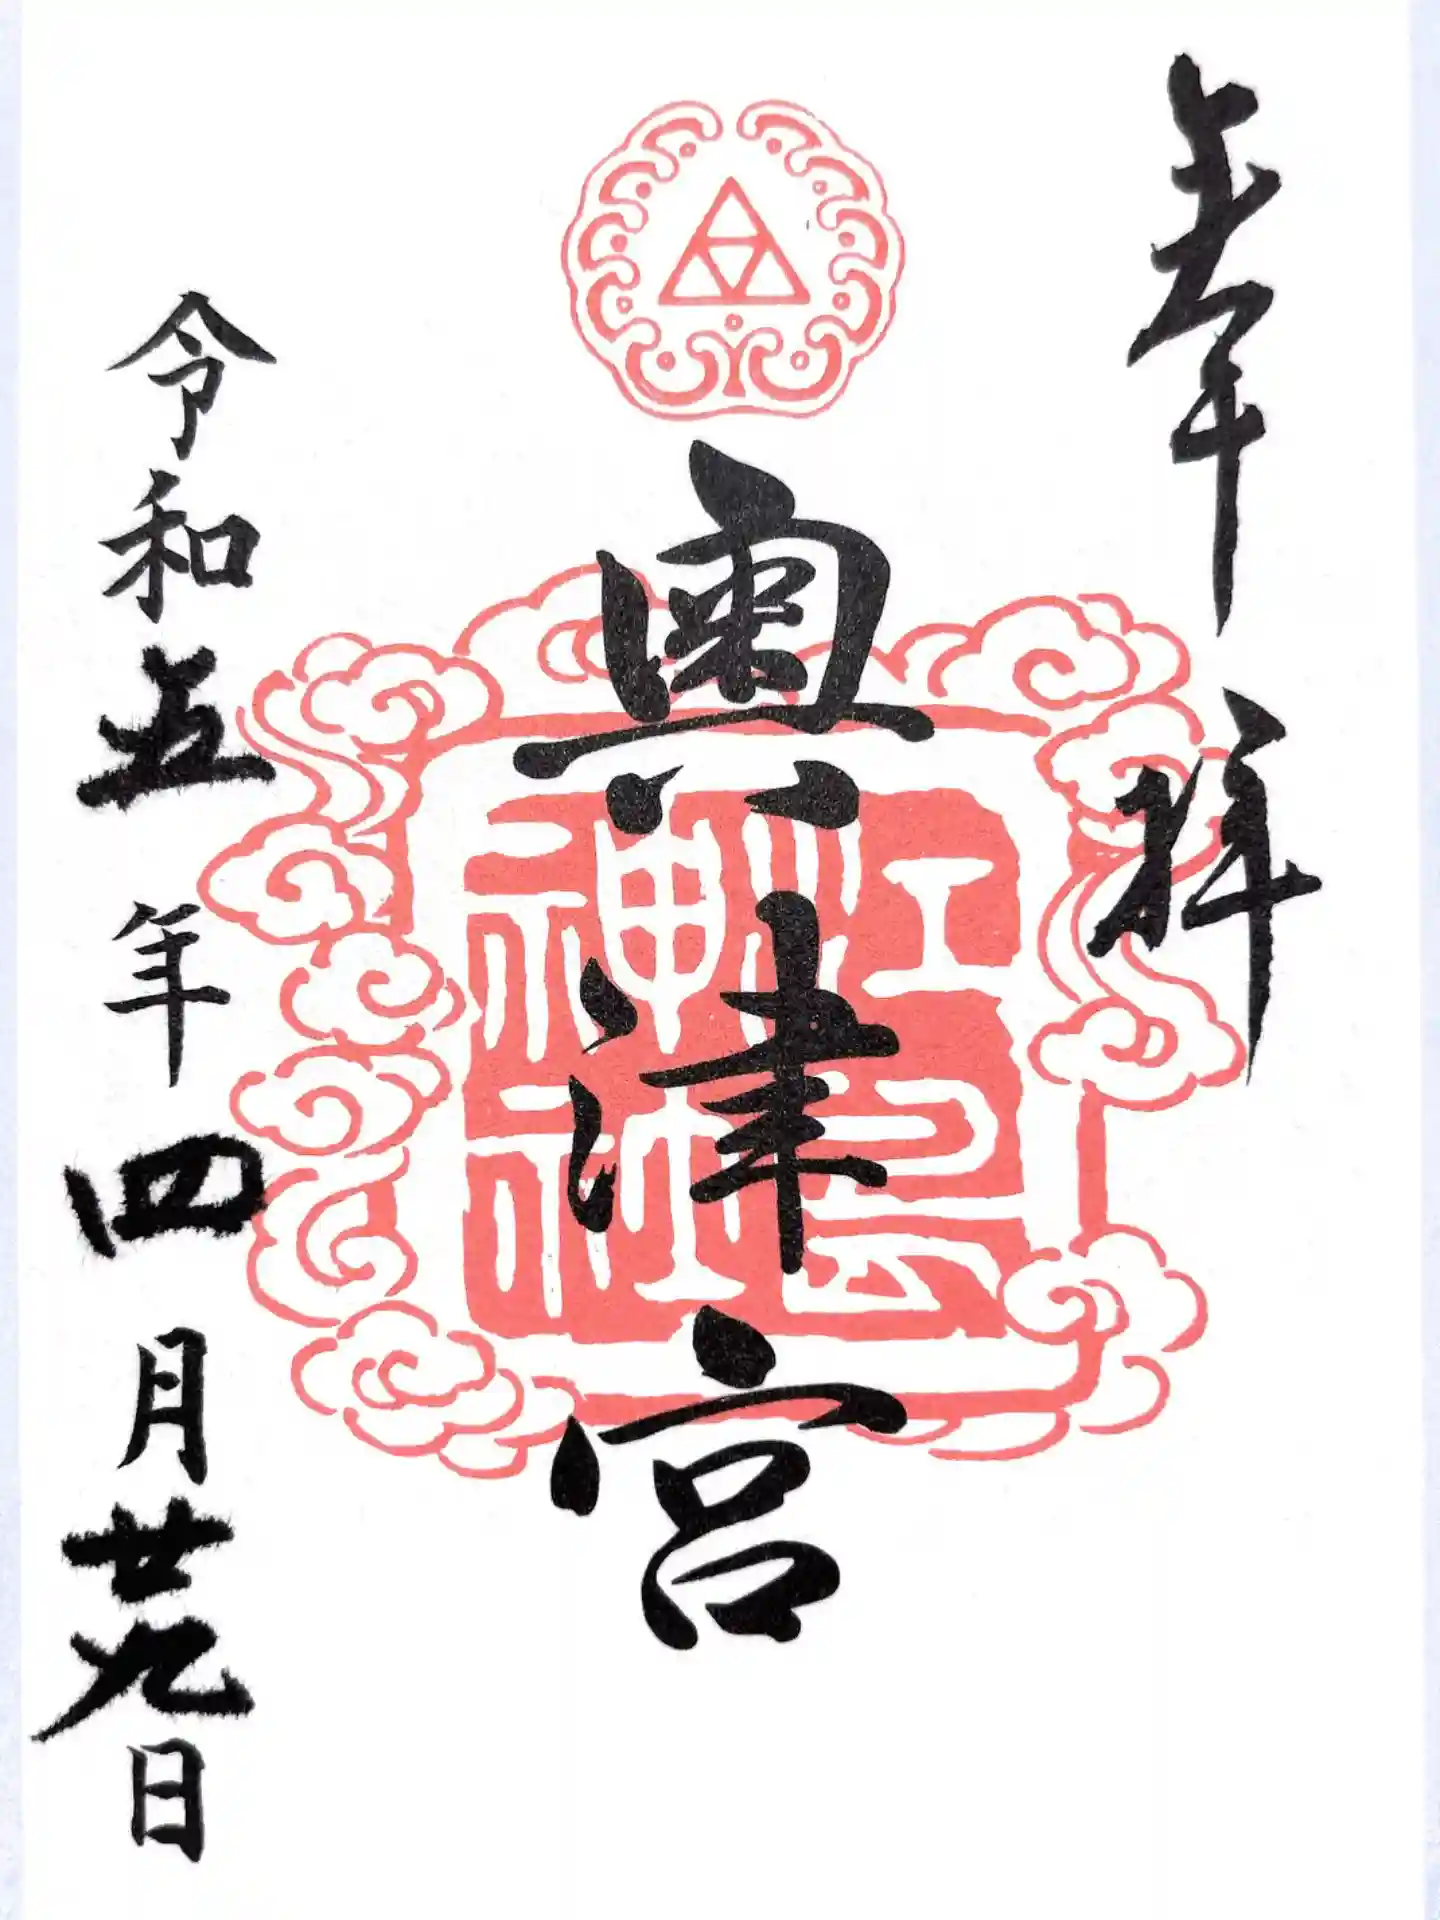 奉拝
奧津宮
江島神社
令和五年四月廿九日